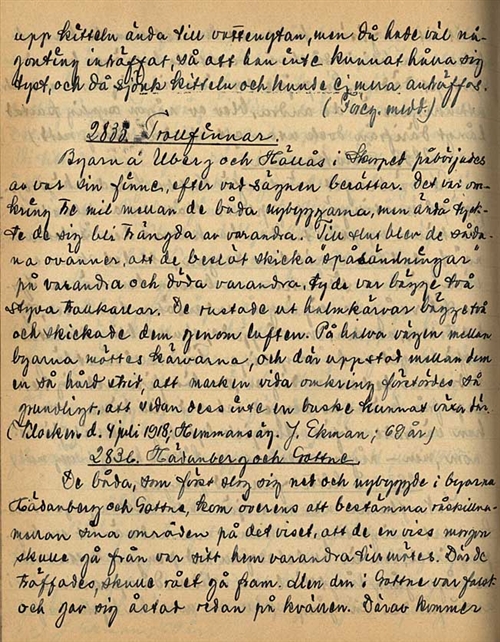 upp kitteln ända till vattenytan, men då hade väl nå-
gonting inträffat, så att han inte kunnat hålla sig
tyst, och då sjönk kitteln och kunde ej mera anträffas.
medt.)
2835. Trollfinnar.
Byarna Uberg och Hällås i Skorped påbörjades
av var sin finne, efter vad sägnen berättar. Det var om-
kring tre mil mellan de båda nybyggarna, men ändå tyck-
te de sig bli trängda av varandra. Till slut blev de såda-
na ovänner, att de beslöt skicka "spåsändningar"
på varandra och döda varandra, ty de var bägge två
styva trollkarlar. De rustade ut halmkärvar bägge två
och skickade dem genom luften. På halva vägen mellan
byarna möttes kärvarna, och där uppstod mellan dem
en så hård strid, att marken vida omkring förstördes så
grundligt, att sedan dess inte en buske kunnat växa där.
(Klocken d. 4 juli 1918; Hemmansäg. J. Ekman, 68 år)
2836. Hädanberg och Gottne.
De båda, som först slog sig ned och nybyggde i byarna
Hädanberg och Gottne, kom överens att bestämma råskillna-
mellan sina områden på det viset, att de en viss morgon
skulle gå från var sitt hem varandra till mötes. Där de
träffades, skulle rået gå fram. Men den i Gottne var falsk
och gav sig åstad redan på kvällen. Därav kommer